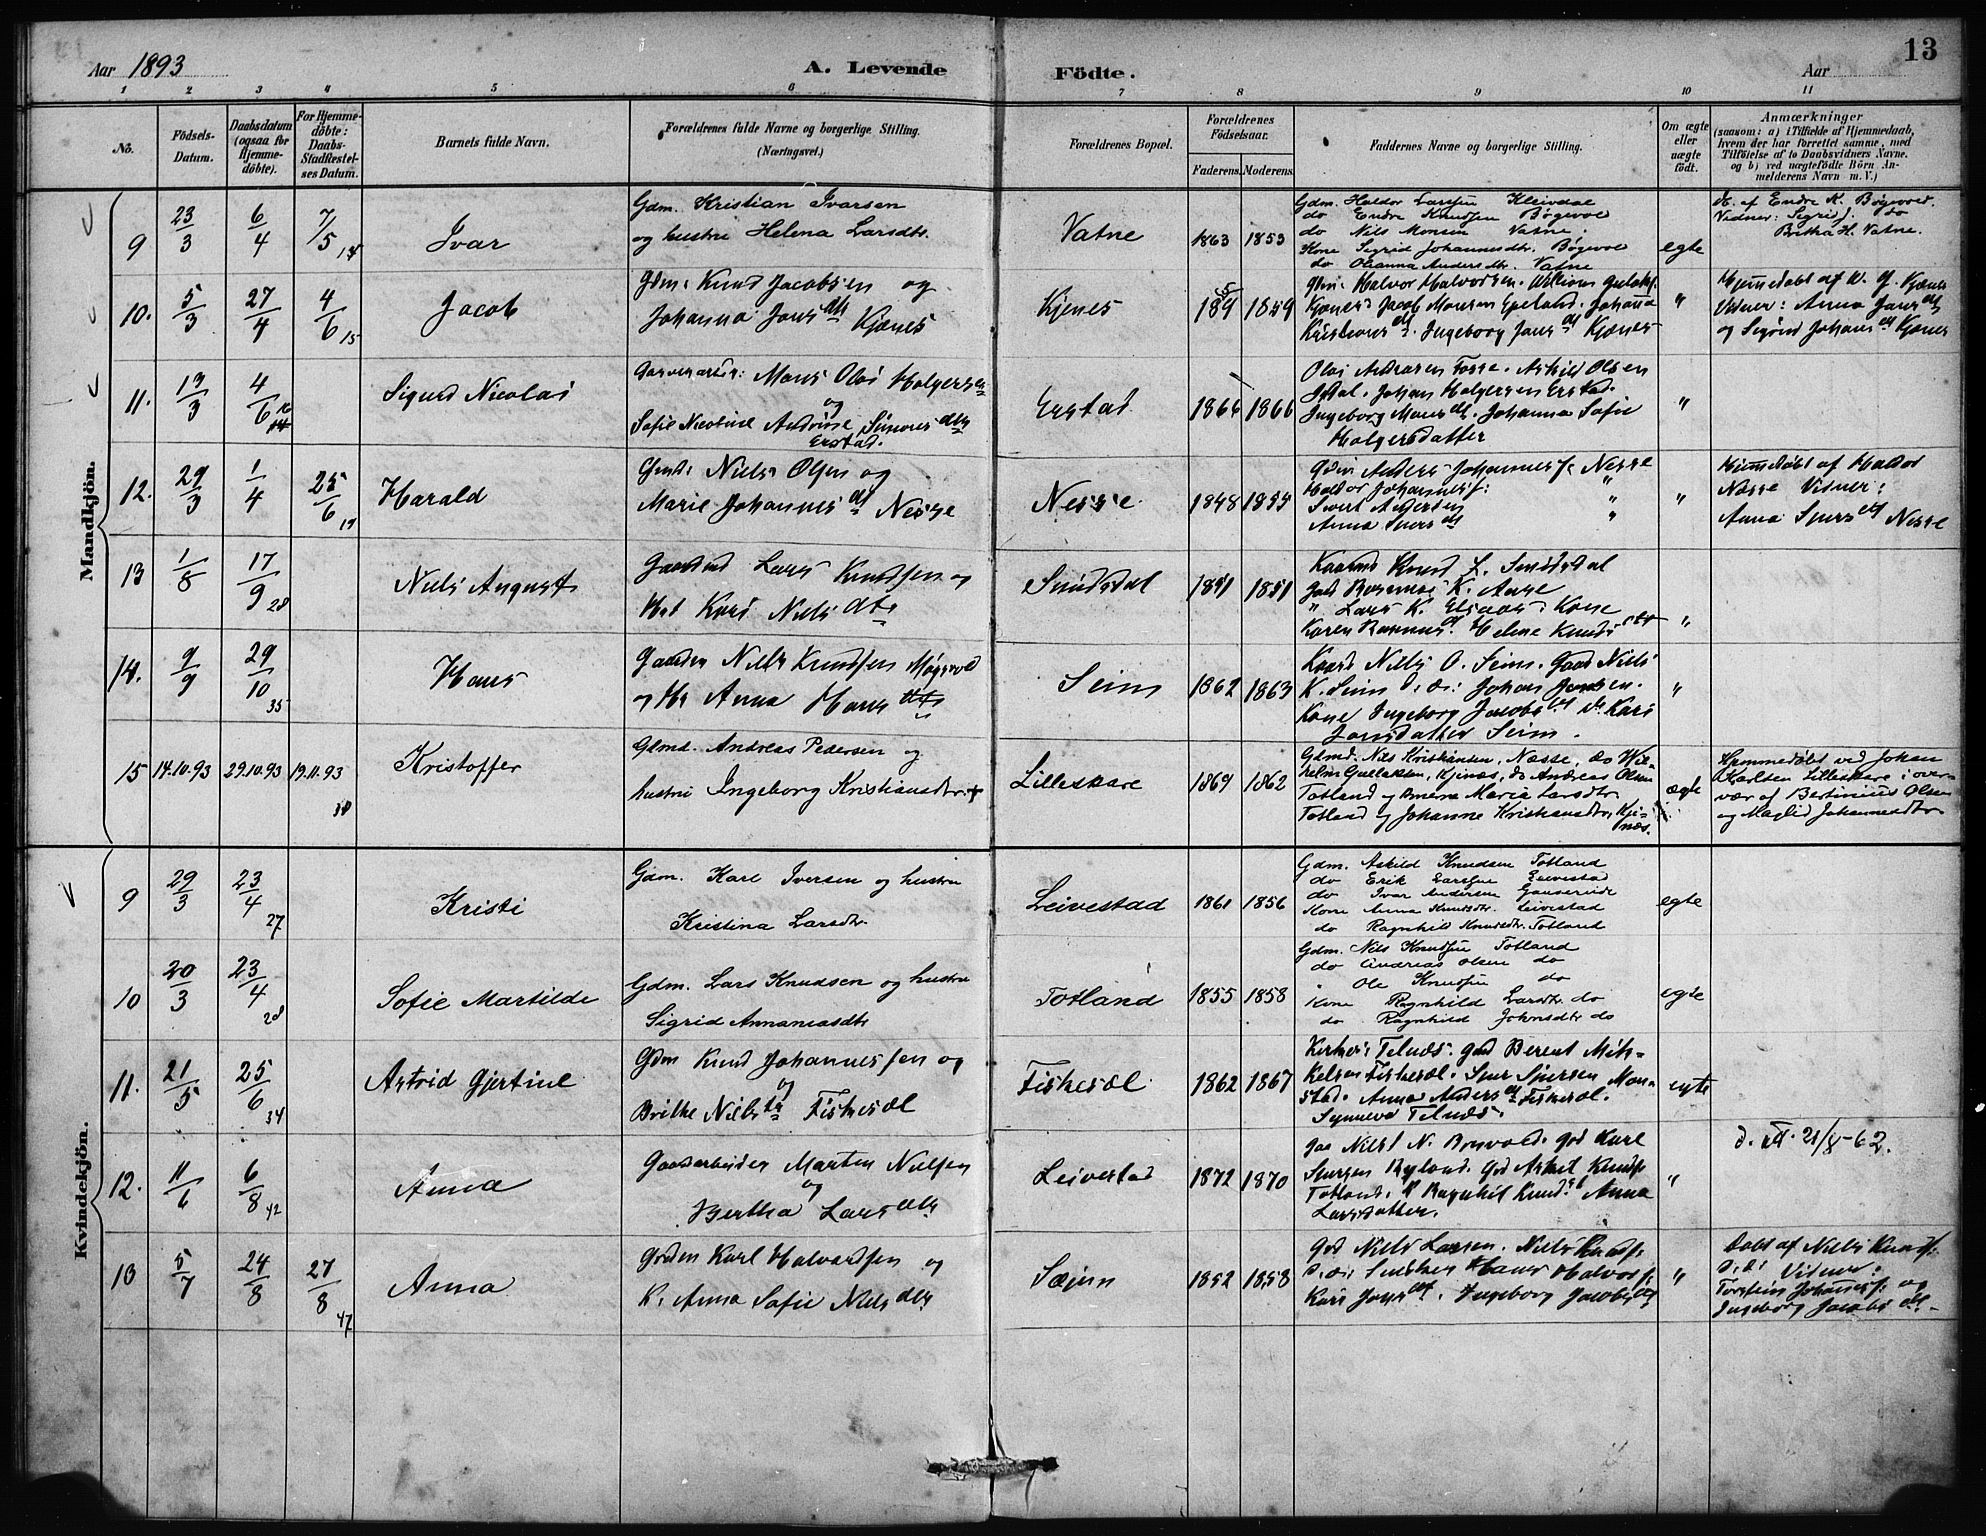 Aar 1893 A. Levende Födte. Aar 13
1 2 3 4 5 6 7 8 9 10 11
No.
Födsels-Datum.
Daabsdatum (ogsaa for Hjemmedöbte).
For Hjemmedöbte: Daabs-Stadfæstelses Datum.
Barnets fulde Navn.
Forældrenes fulde Navne og borgerlige Stilling. (Næringsvei.)
Forældrenes Bopæl.
Forældrenes Födselsaar.
Faderens. Moderens.
Faddernes Navne og borgerlige Stilling.
Om ægte eller uægte födt.
Anmærkninger
(saasom: a) i Tilfælde af Hjemmedaab, hvem der har forrettet samme, med Tilföielse af to Daabsvidners Navne. og b) ved uægtefödte Börn Anmelderens Navn m. V.)
Mandkjön.
9 23/3 6/4 7/5 14 Ivar
Gdm. Kristian Ivarsen
og hustru Helena Larsdtr.
Vatne 1863 1853
Gdm. Haldor Larssen Kleivdal
do Endre Knudsen Bøgevol
do Nils Monsen Vatne.
Kone Sigrid Johannesdtr. Bøgevol
do Olianna Andersdtr. Vatne
egte
d. af Endre K. Bøgevold.
Vidner: Sigrid J. do
Britha H. Vatne.
10. 5/3 27/4 4/6 15 Jacob
Gdm: Knud Jacobsen og
Johanna Jansdtr Kjænes
Kjenes 1859
Gbm: Halvor Halvorsen. William
Kjænes. Jacob Monsen Epeland. Johanna
Kristiansdt. Ingeborg Jansdt Kjænes
"
Hjemmedøbt af K. J. Kjænes
Vidner: Anna Jansdt
og Sigrid Johansdt Kjænes
11. 13/3 4/6 16 Sigurd Nicolai
Garverarbeider: Mons Olai Holgersen
og
Sofie Nicoline Andrine Simonsdtr
Erstad.
Erstad. 1866 1866
Olai Andersen Fosse. Astrid Olsen
Johan Holgersen Erstad.
Ingeborg Monsdt. Johanna Sofie
Holgersdatter
"
12. 29/3 1/4 25/6 17 Harald
Gmd: Niels Olsen og
Marie Johannesdt Nesse
Nesse 1848 1854
Gdm Anders Johannes f. Nesse
Haldor Johannes f: "
Sivert Andersen
Anna Spersdt "
"
Hjemmedøbt af Haldor
Nesse Vitner:
Anna Spersdt Nesse
13 1/8 17/9 28 Niels August
Gaardmd Lars Knudsen og
Hst Kari Nielsdtr
Smidsdal 1851 1851
Kaarmd Knud L. Smidsdal
Gad Rasmus K. Aase
" Lars K. Kone
Karen Rasmusdt. Helene Knudsdtr
"
14. 9/9 29/10 35 Hans
Gaardm Niels Knudsen Møgevold
og Hu Anna Hansdtr
Seim 1862 1863
Kaard Niels O. Seim. Gaad Niels
K. Seim d: s: Johan Jansen.
Kone Ingeborg Jacobsdt do Kari
Jansdatter Seim.
"
15 14.10.93 29.10.93 19.11.93 38 Kristoffer
Glmd. Andreas Pedersen og
hustru Ingeborg Kristiansdtr.
Lilleskare 1869 1862
Gdmd. Nils Kristiansen, Næsse, do Wil-
helm Gullaksen, Kjenæs, do Andreas Olsen
Totland og Maria Larsdtr
Totland og Johanne Kristiansdtr, Kje-
næs.
ægte
Hjemmedøbt ved Johan
Karlsen Lilleskare i over-
vær af Bertinius Olsen
og Maglid Johannesdtr
Kvindekjön.
9 29/3 23/4 27 Kristi
Gdm. Karl Iversen og hustru
Kristina Larsdtr
Leivestad 1861 1856
Gdm. Askild Knudsen Totland
do Erik Larssen Leivestad
do Ivar Andersen
Kone Anna Knudsdtr. Leivestad
do Ragnhild Knudsdtr. Totland
egte
10 20/3 23/4 28 Sofie Martilde
Gdm. Lars Knudsen og hustru
Sigrid Annaniasdtr
Totland 1855 1858
Gdm. Nils Knudsen Totland
do Andreas Olsen do
" Ole Knudsen do
Kone Ragnhild Larsdtr. do
do Ragnhild Johnsdtr do
egte
11. 21/5 25/6 34 Astrid Gjertine
Gdm Knud Johannessen og
og
Brithe Nielsdtr Fiskesæl
Fiskesæl 1862 1867
Kirkes: Telnæs. Gad Berent Mik-
kelsen Fiskesæl. Sper Spersen Mon-
stad. Anna Andersdt Fiskesæl.
Synneva Telnæs.
egte
12. 11/6 6/8 42 Anna
Gaardarbeider Marten Nielsen
og
Bertha Larsdtr
Leivestad 1872 1870
Gaa Niels N. Bøgvold. Gad Karl
Spersen Ryland. Gad Askil Knuds
Totland. K Ragnhil Knudsdt Anna
Larsdatter.
"
d. 21/8-62.
13 5/7 24/8 27/8 47 Anna
Grdm Karl Halvardsen og
K. Anna Sofie Nielsdtr
Sæjm 1852 1858
Gad Niels Larsen. Niels Knuds:
S. d: Hans Halvors f:
Kari Jansdt. Ingeborg Jacobsdt
"
Døbt af Niels Knuds:
S. d: Vitner:
Torstein Johannes f: og
Ingeborg Jacobsdt.